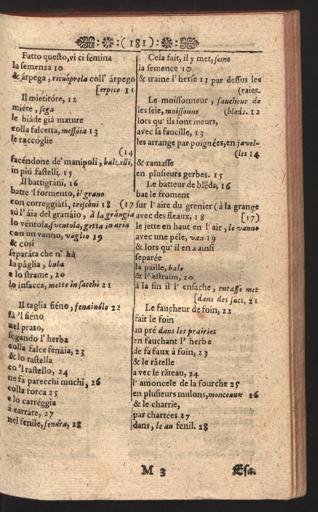 (181)
Fatto questo, vi ci semina
la semenza 10
& árpega, ricuóprela coll' árpego
[erpice 11
Il mietitóre, 12
miéte, sega
le biàde già mature
colla falcetta, messóia 13
le raccóglie
(14
facéndone de' manipoli,
in più fastelli, 15
Il battigráni, 16
batte 'l formento, il grano
con correggiáti, tréscóni 18 (17
sù l' áia del granáio, à la grángia
lo véntola, sventola, getta in aria
con un vanno, váglio 19
& così
separáta che n' hà
la páglia, bula
e lo strame, 20
lo insacca, mette in sacchi 21
Il taglia fiéno, fenaiuólo 22
fà 'l fiéno
nel prato,
segando l' herba
colla falce fenáia, 23
& lo rastella
co 'l rastello, 24
ne fa parecchi muchi, 26
colla forca 25
e lo carréggia
à carrate, 27
nel fenile, 28
Cela fait, il y met, seme
la semence 10
& traine l' herse 11 par dessus les
(raies.
Le moissonneur, faucheur de
les seie, moissonne (bleds. 12
lors qu' ils sont meurs,
avec sa faucille, 13
les arrange par poignées, en javel-
(les 14
& ramasse
en plusieurs gerbes. 15
Le batteur de blêds. 16
bat le froment
sur l' aire du grenier (à la grange
avec des fleaux, 18 [17)
le jette en haut en l' air, le vanno
avec une péle, van 19
& lors qu' il en a ainsi
separée
la paille, bale
& l' estraim, 20
à la fin il l' ensache, entasse met
[dans des sacs, 21
Le faucheur de foin, 22
fait le foin
au pré dans les prairies
en fauchant l' herbe
de sa faux à foin, 23
& le râtelle
avec le râteau, 24
l' amoncele de la fourche 25
en plusieurs mulons, monceaux 26
& le charrie,
par chartées 27
dans, le au fenil. 28
M 3